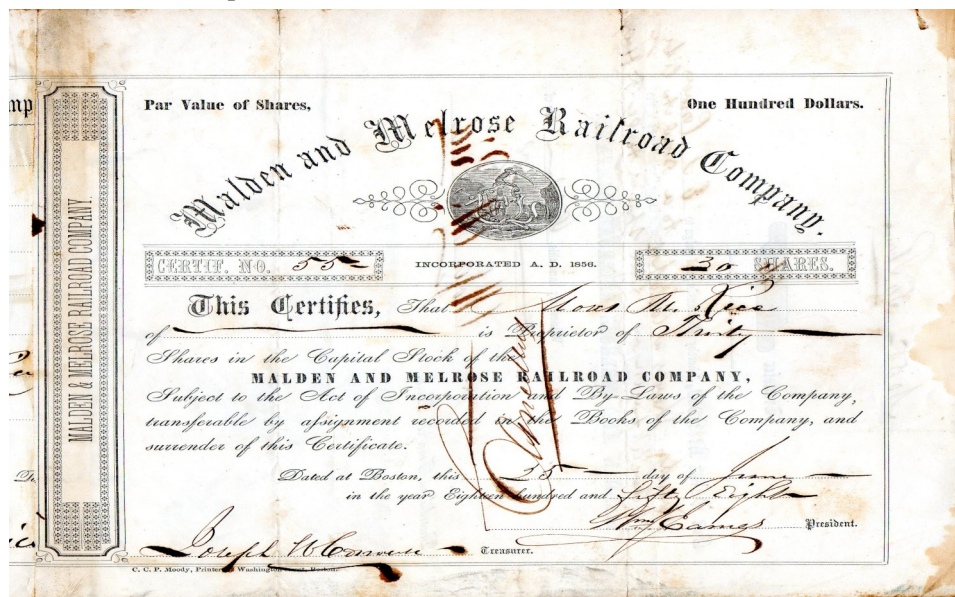 Par Value of Shares, One Hundred Dollars.
Malden and Melrose Railroad Company.
CERTIF. NO. 55 INCORPORATED A. D. 1856. 30 SHARES.
This Certifies, That Moses M. Rice
of is Proprietor of Thirty
Shares in the Capital Stock of the
MALDEN AND MELROSE RAILROAD COMPANY,
Subject to the Act of Incorporation and By-Laws of the Company,
transferable by assignment recorded in the Books of the Company, and
surrender of this Certificate.
Cancelled
Dated at Boston, this 25 day of June
in the year Eighteen hundred and fifty Eight
President.
Joseph H Converse Treasurer.
C. C. P. Moody, Printer, Washington Street, Boston.
MALDEN & MELROSE RAILROAD COMPANY.